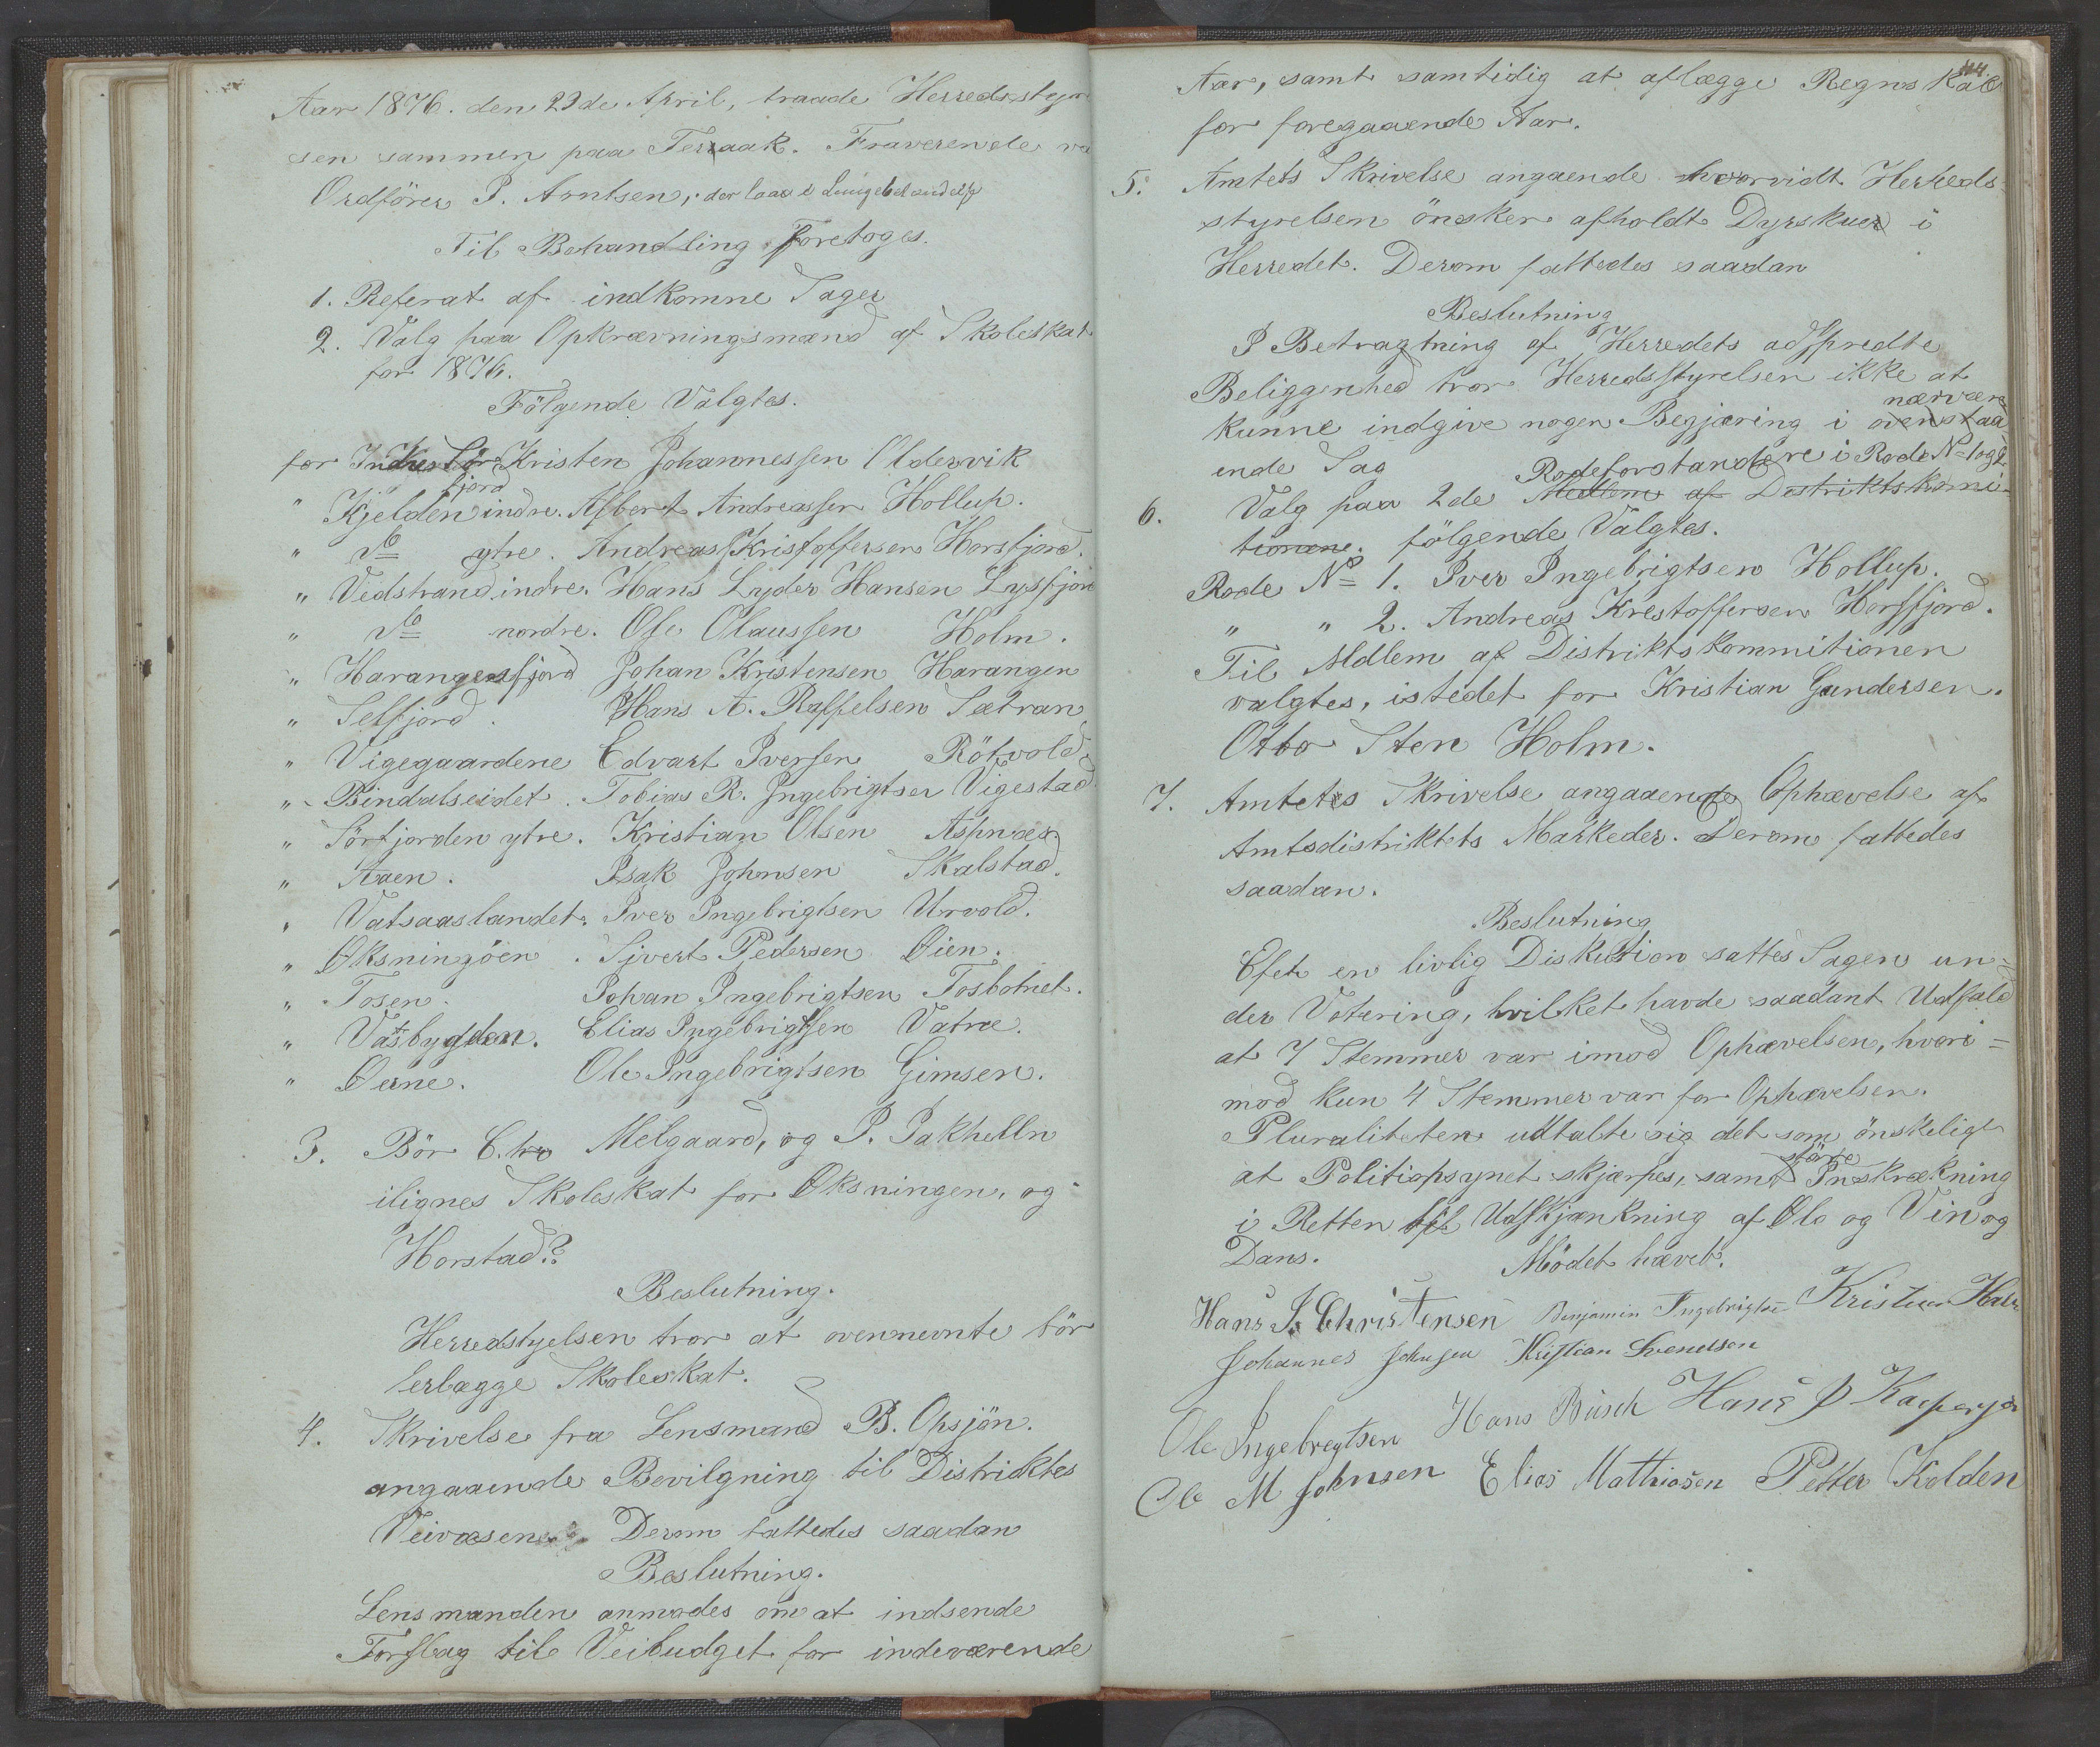 Aar 1876. den 29de April, traade Herredsstyrel
sen sammen paa Terraak. Fraverende va
Ordförer P. Arntsen, der laa i
Til Behandling foretoges.
1. Referat af indkomne Sager
2. Valg paa Opkrævningsmænd af Skoleskat
for 1876.
Fölgende Valgtes.
for Indre Sör Kristen Johannessen Oldervik
fjord
" Kjelden indre. Albert Andreassen Hollup.
" do ytre. Andreas Kristoffersen Horsfjord.
" Vedstrand indre. Hans Lyder Hansen Lysfjord
" do nordre. Ole Olaussen Holm.
" Harangersfjord Johan Kristensen Harangen
" Selfjord. Hans A. Raffelsen Sætran
" Vigegaardene Edvart Iversen Rötvold.
" Bindalseidet. Tobias R. Ingebrigtsen Vigestad
" Sörfjorden ytre. Kristian Olsen Aspnæs
" Aaen. Isak Johnsen Skalstad.
" Vatsaaslandet. Iver Ingebrigtsen Urvold.
" Øksningöen. Sivert Pedersen Øien.
" Tosen. Johan Ingebrigtsen Tosbotnet.
" Vasbygden. Elias Ingebrigtsen Vatne.
" Øerne. Ole Ingebrigtsen Gimsen.
3. Bör C. Melgaard, og P. Jakhelln
ilignes Skoleskat for Øksningen, og
Horstad??
Beslutning.
Herredstyelsen tror at ovennevnte bör
erlægge Skoleskat.
4. Skrivelse fra Lensmand B. Opsjön.
angaaende Bevilgning til Distriktes
Veivæsen. Derom fattedes saadan
Beslutning.
Lensmanden anmodes om at indsende
Forslag til Veibudget for indeværende
44.
Aar, samt samtidig at aflægge Regnskab
for foregaaende Aar.
5. Amtets Skrivelse angaende hvorvidt Herreds-
styrelsen önsker afholdt Dyrskuer i
Herredet. Derom fattedes saadan
Beslutning
I Betragtning af Herredets adspredte
Beliggenhed tror Herredsstyrelsen ikke at
nærvær
kunne indgive nogen Begjæring i ovenstaa
ende Sag
Rodeforstandere i Rode No 1 og 2
6. Valg paa 2de Medlem af Destriktskomi-
tionene. fölgende Valgtes.
Rode No 1. Iver Ingebrigtsen Hollup.
" " 2. Andreas Krestoffersen Horsfjord.
Til Mdlem af Distriktskommitionen
valgtes, istedet for Kristian Gundersen.
Otto Sten Holm.
7. Amtets Skrivelse angaaende Ophævelse af
Amtsdistriktets Markeder. Derom fattedes
saadan.
Beslutning
Efet en livlig Diskution sattes Sagen un=
der Votering, hvilket havde saadant Udfald
at 7 Stemmer var imod Ophævelsen, hvori=
mod kun 4 Stemmer var for Ophævelsen.
Pluraliteten udtalte sig det som önskeligt
at Politiopsynet skjærpes, samt störe Inskrækning
i Retten til Udskjænkning af Øl og Vin og
Dans. Mödet hævet.
Hans J. Christensen Benjamin Ingebrigtsen Kristian
Johannes Johnsen Kristian Svendsen
Ole Ingebregtsen Hans Busch Hans P Kaspersen
Ole M Johnsen Elias Mathiasen Petter Kolden